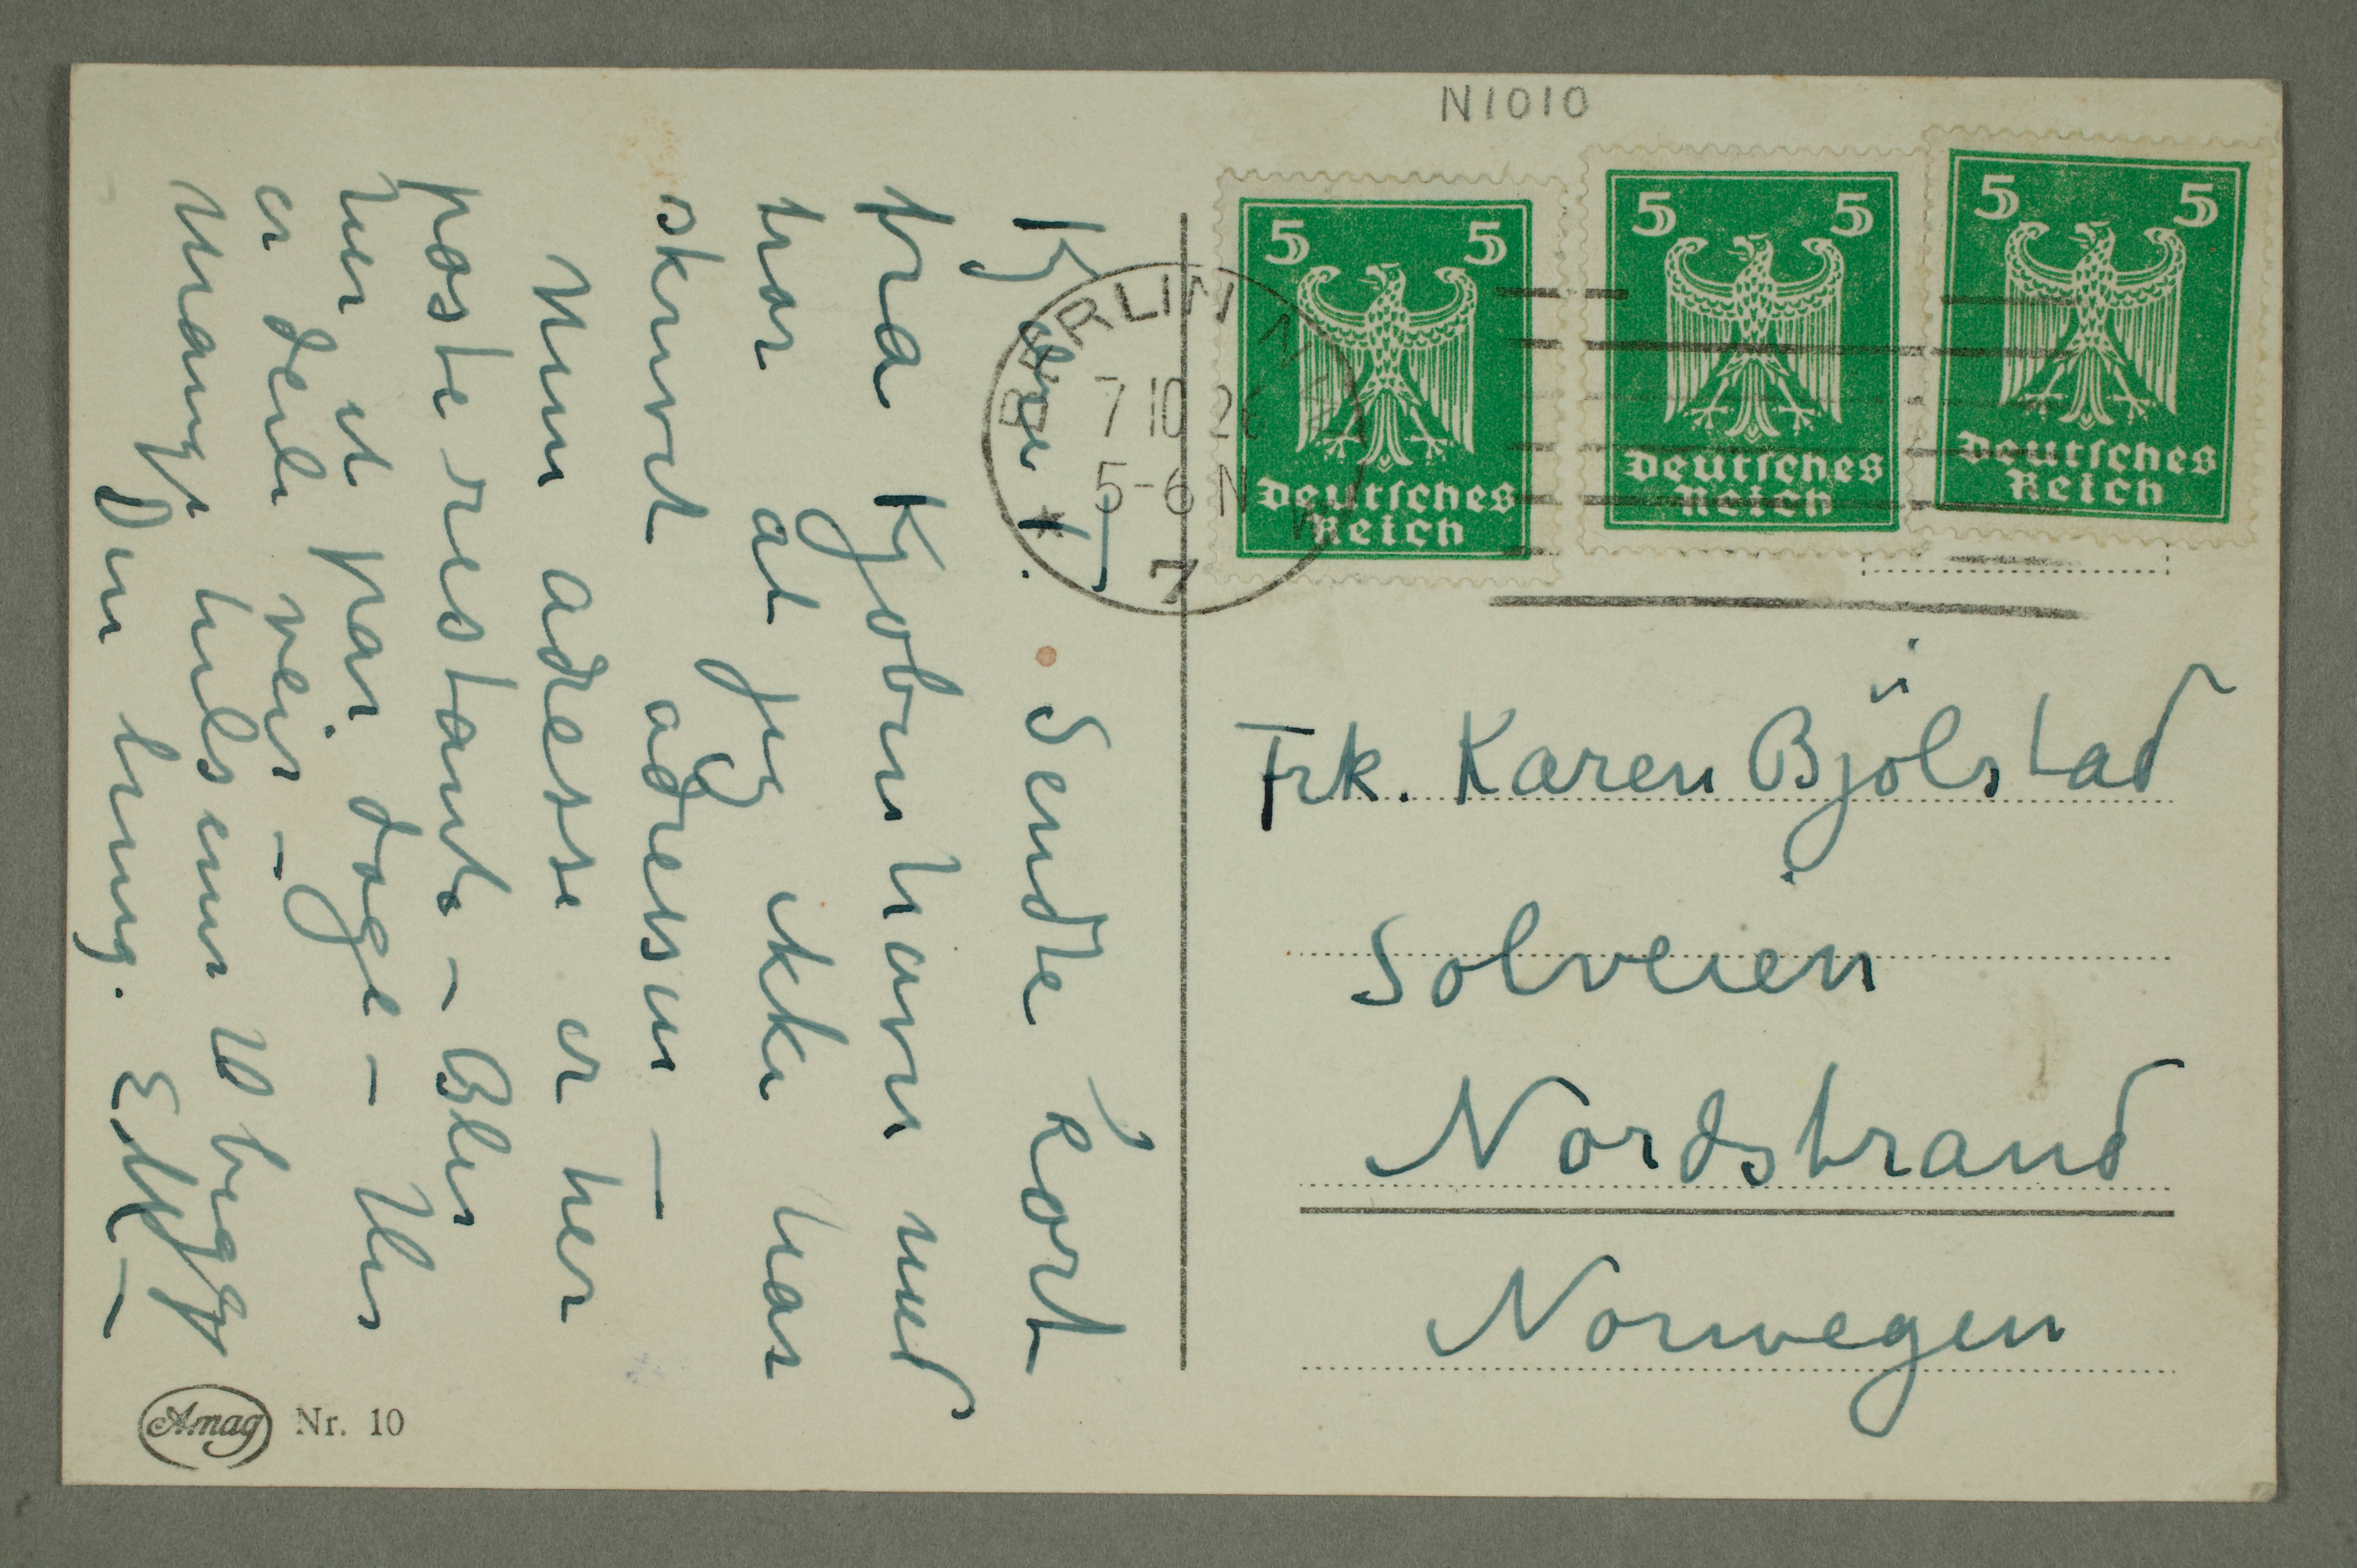 N1010
5 5
Deutsches
Reich
5 5
Deutsches
Reich
5 5
Deutsches
Reich
BERLIN
7 10 26
5-6 N
7
Kjære t. Sendte kort
fra Kjøbenhavn med
tror at jeg ikke har
skrevet adressen —
Min adresse er her
poste restante — Blir
her et par dage — Her
er deili veir —
Mange hilsener
Din heng. EM —
Frk. Karen Bjölstad
Solveien
Nordstrand
Norwegen
Amag Nr. 10